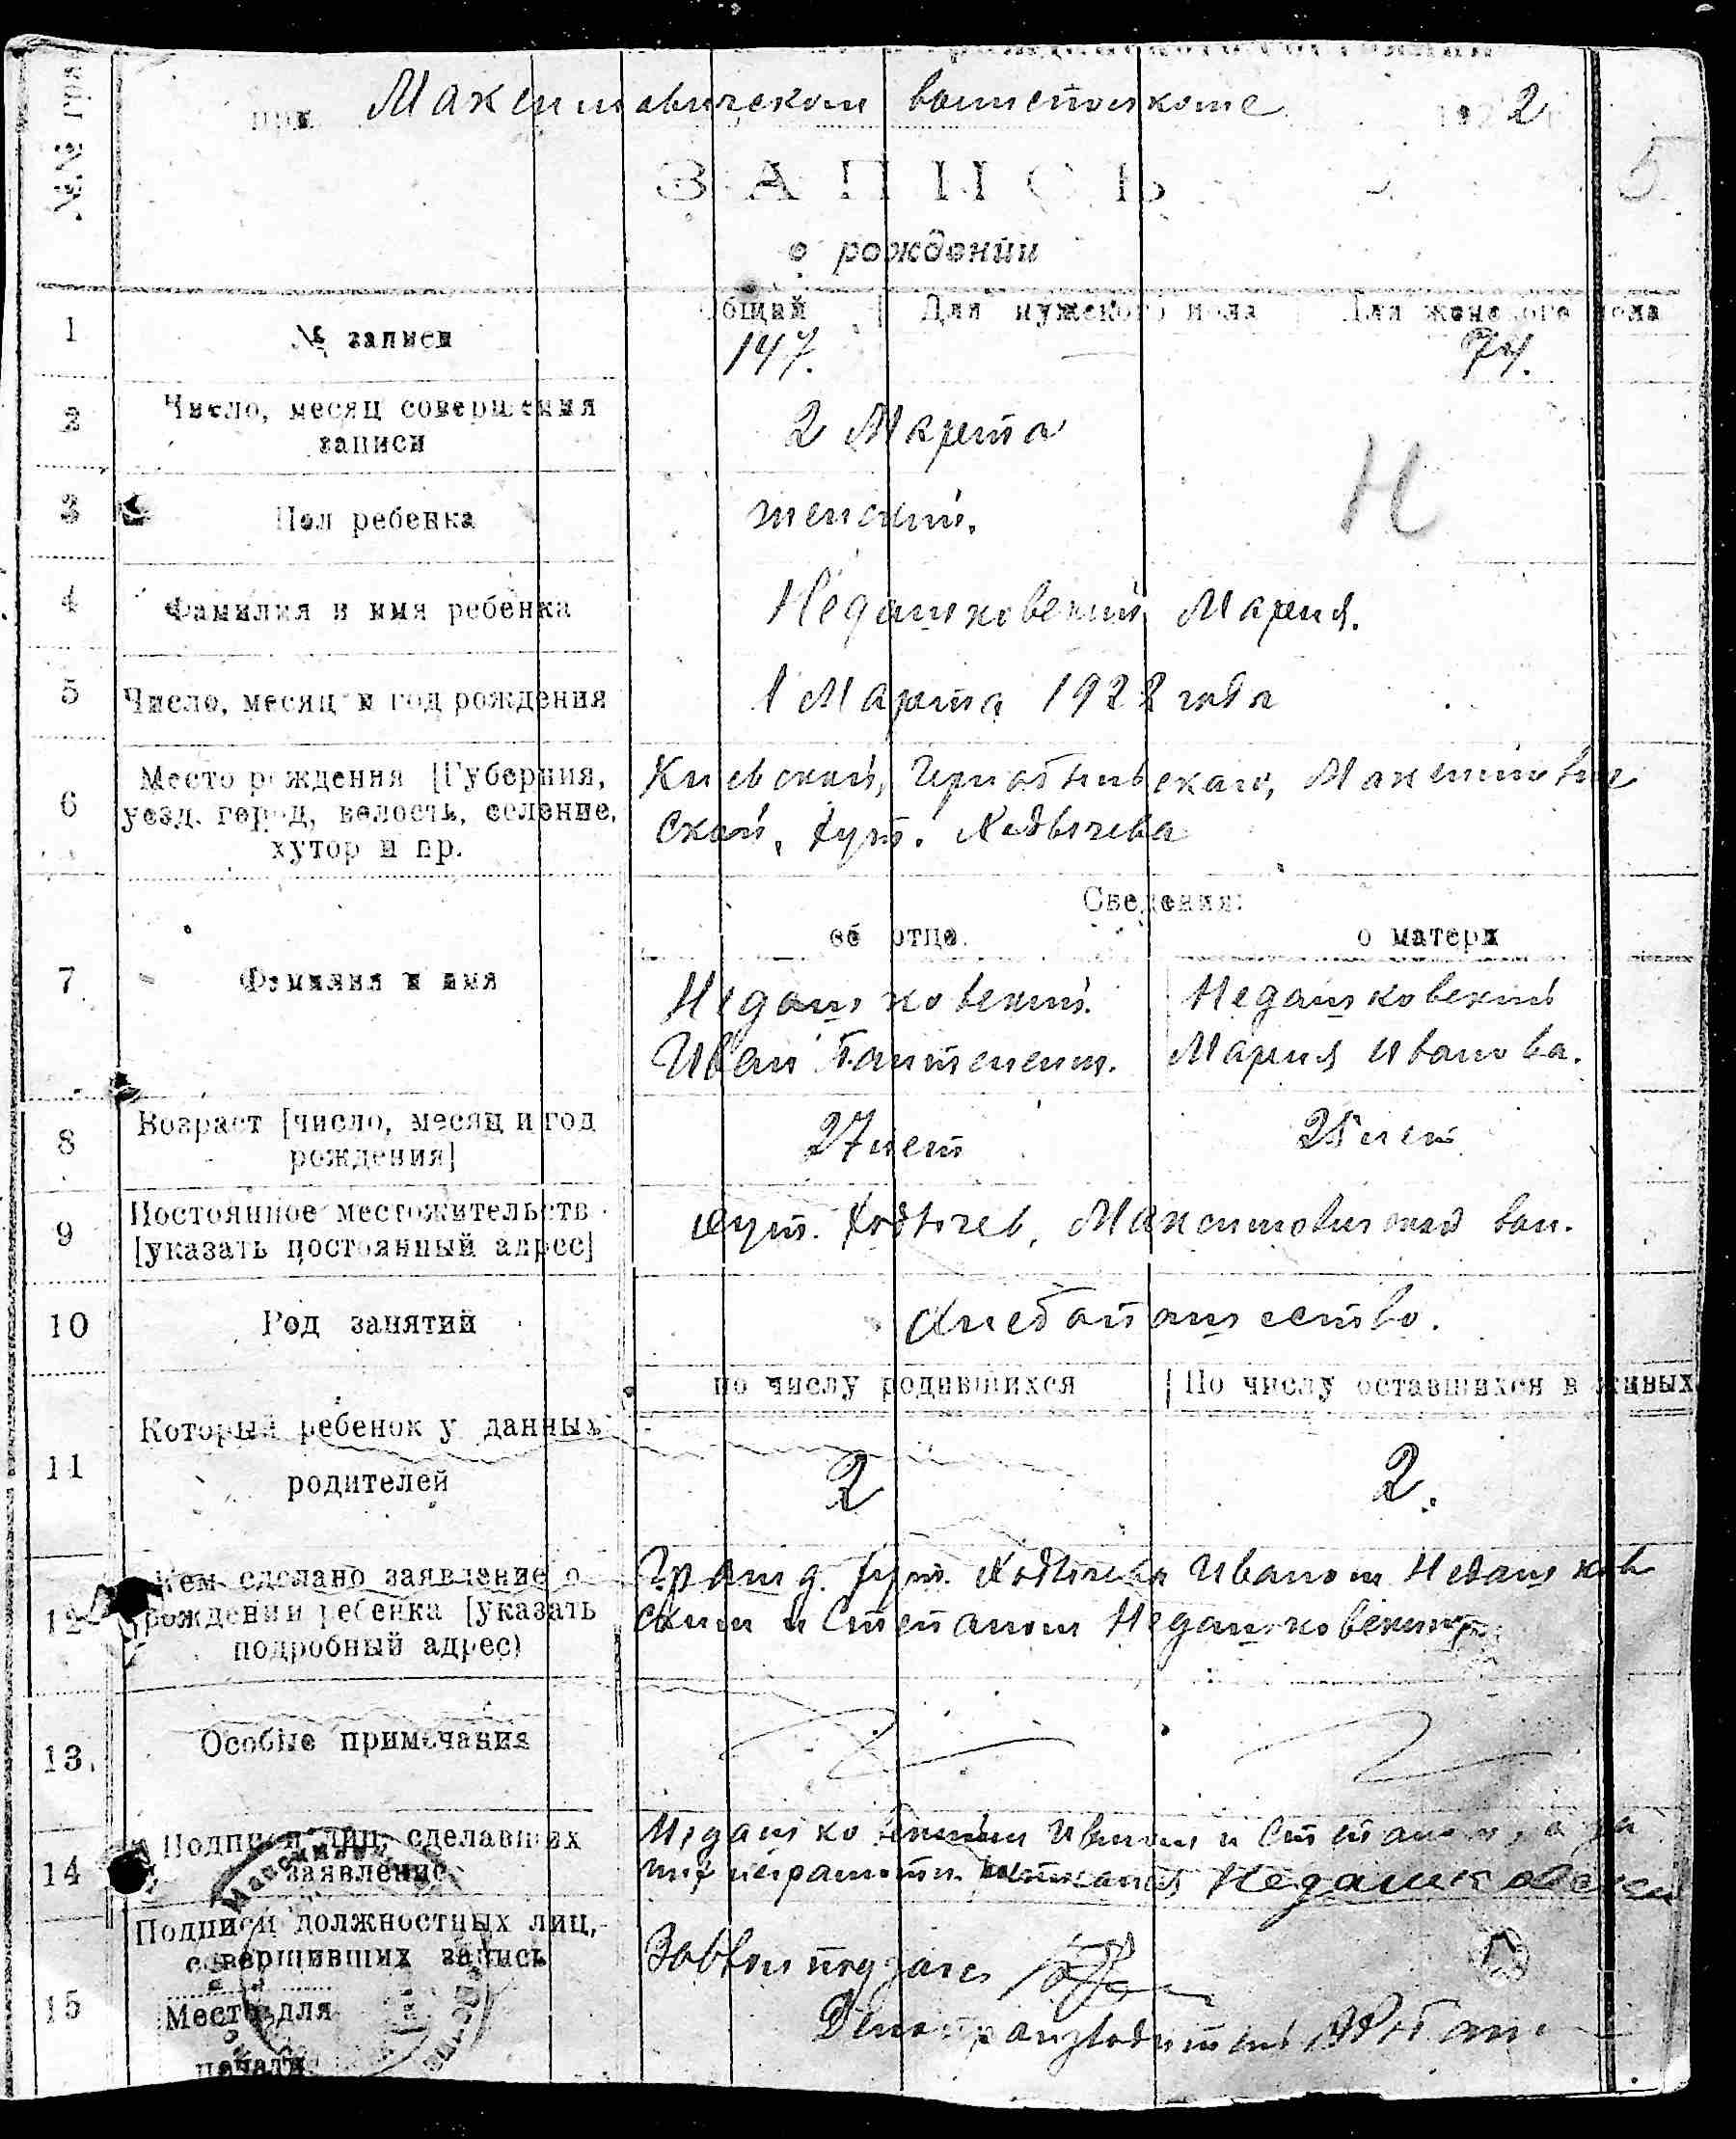 №№ граф
при Максимовическом волисполкоме 1922
5
ЗАПИСЬ
о рождении
Общий Для мужского пола Для женского пола
1 № записи 147. — 74.
2 Число, месяц совершения
записи 2 Марта
Н
3 Пол ребенка женский.
4 Фамилия и имя ребенка Недашковский Мария.
5 Число, месяц и год рождения 1 Марта 1922 года
6 Место рождения [Губерния,
уезд, город, волость, селение,
хутор и пр.
Киевской, Чернобыльскаго, Максимович
ской, хут. Ходвычева
Сведения:
об отце. о матери
7 Фамилия и имя
Недашковский Недашковский
Иван Мария Иванова.
8 Возраст [число, месяц и год
рождения]
27 лет 25 лет
9 Постоянное местожительств
[указать постоянный адрес]
хут. Ходвычев, Максимовичской вол.
10 Род занятий Хлебопашество.
по числу родившихся По числу оставшихся в живых
11 Который ребенок у данных
родителей
2 2.
12 Кем сделано заявление о
рождении ребенка [указать
подробный адрес)
Гражд. хут. Ходвычева Иваном Недашков
ским и Степаном Недашковским
13. Особые примечания
14 Подписи лиц, сделавших
заявление
Недашковский Иван и Степан, а за
них неграмотн. Недашковский
15 Подписи должностных лиц,
совершивших запись
Место для
печати
Делопроизводитель